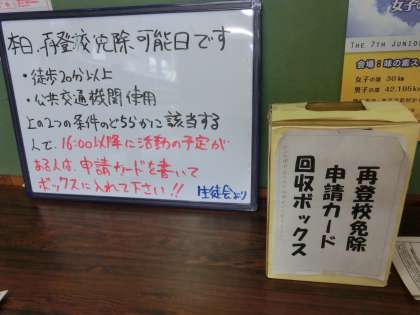 本日、再登校免除可能日です
・徒歩20分以上
・公共交通機関使用
上の2つの条件のどちらかに該当する
人で、16:00以降に活動の予定が
ある人は、申請カードを書いて
ボックスに入れて下さい!!
生徒会より
再登校免除
申請カード
回収ボックス
女子の
THE 7TH JUNIO
女子の部 30km
男子の部 42.195k